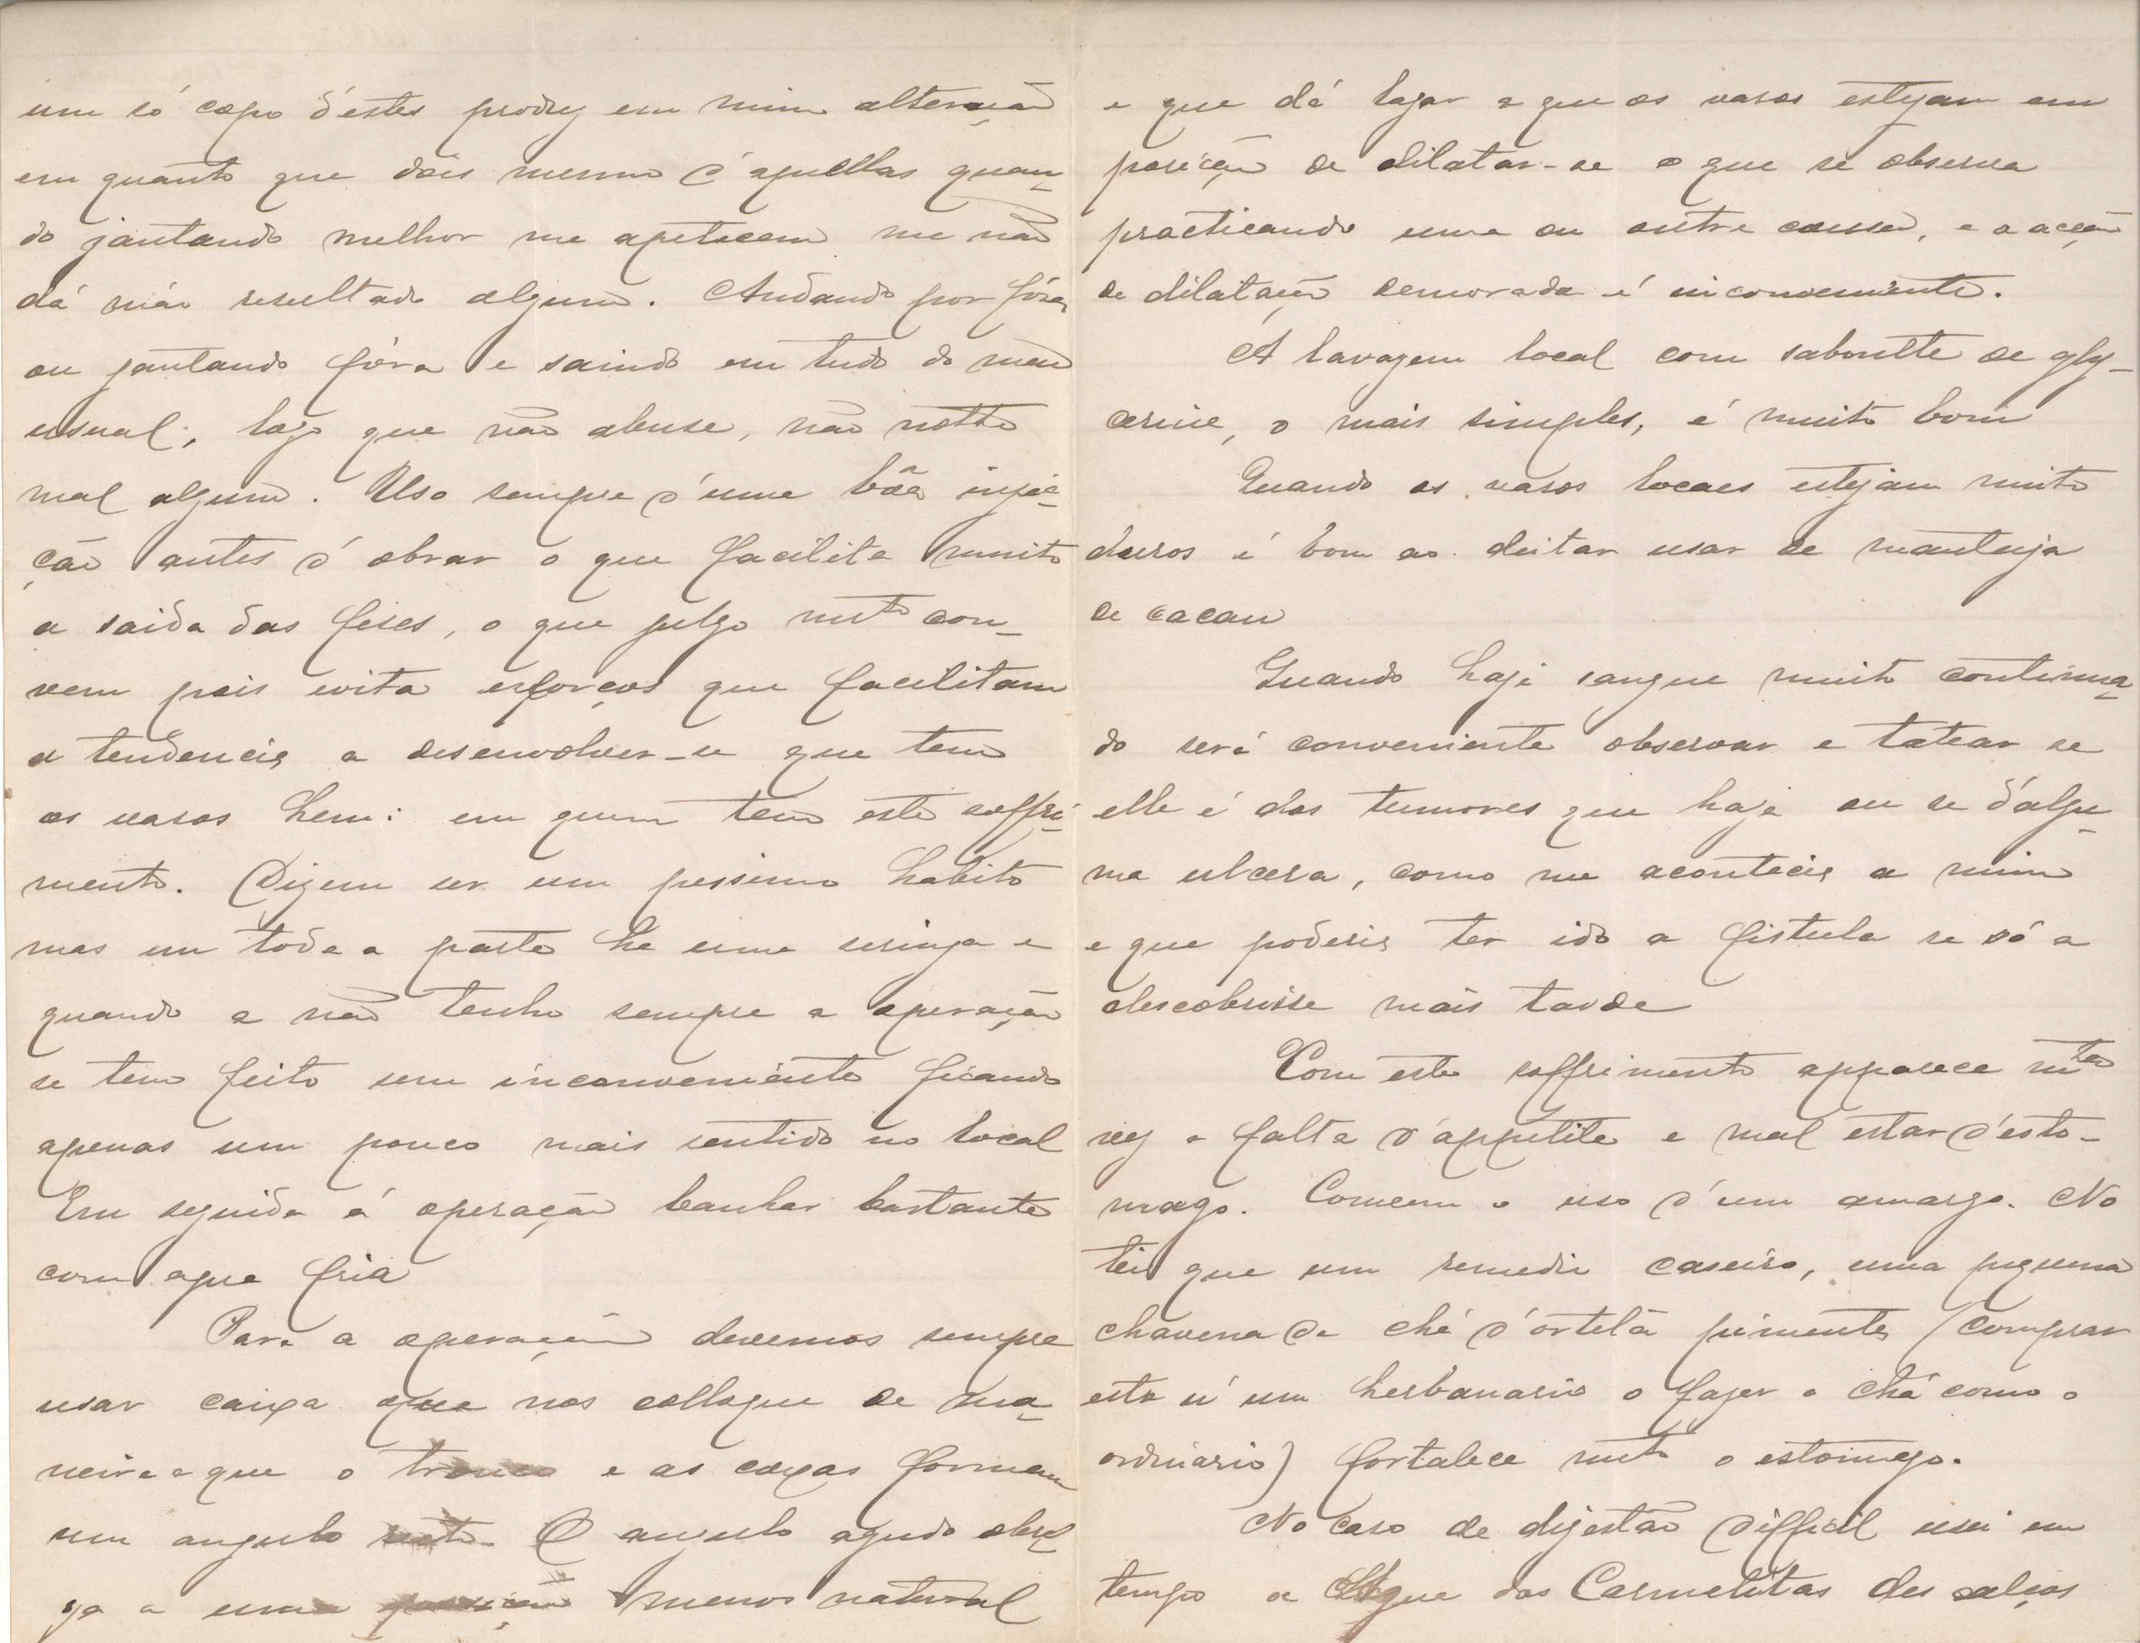 um só copo d'estes produz em mim alteração
em quanto que dois mesmo d'aquellas quan-
do jantando melhor me apetecem me não
dá máo resultado algum. Andando por fóra
ou jantando fóra e saindo em tudo do meu
usual, logo que não abuse, não notto
mal algum. Uso sempre d'uma bôa injec-
ção antes d'obrar o que facilita muito
a saida das feses, o que julgo mto con-
vem pois evita esforços que facilitam
a tendencia a desenvolver-se que tem
os vasos hem: em quem tem este soffri-
mento. Dizem ser um pessimo habito
mas em toda a parte ha uma seringa e
quando a não tenho sempre a operação
se tem feito sem inconveniente ficando
apenas um pouco mais sentido no local
Em seguida á operação banhar bastante
com agua fria
Para a operação devemos sempre
usar caixa que nos colloque de ma-
neira a que o tronco e as coxas formem
um angulo recto. O angulo agudo obri-
ga a uma posição menos natural
e que dá logar a que os vasos estejam em
posição de dilatar-se o que se observa
practicando uma ou outra cousa, e a acção
de dilatação demorada é inconveniente.
A lavagem local com sabonette de gly-
cerine, o mais simples, é muito bom
Quando os vasos locaes estejam muito
duros é bom ao deitar usar de manteiga
de cacau
Quando haja sangue muito continua-
do será conveniente observar e tatear se
elle é dos tumores que haja ou se d'algu-
ma ulcera, como me acontecia a mim
e que poderia ter ido a fistula se só a
descobrisse mais tarde
Com este soffrimento apparece mtas
vez a falta d'appetite e mal estar d'esto-
mago. Convem o uso d'um amargo. No
tei que um remedio caseiro, uma pequena
chavena de chá d'ortelã pimenta (comprar
esta n'um herbanario e fazer o chá como o
ordinario) fortalece mto o estomago.
No caso de digestão difficil usei em
tempo a Agua das Carmelitas descalças